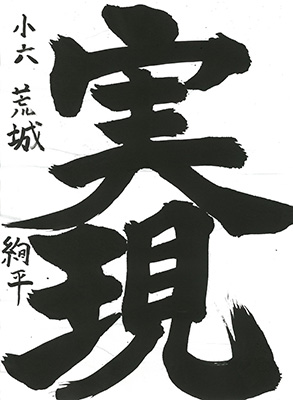 実現
小六 荒城 絢平